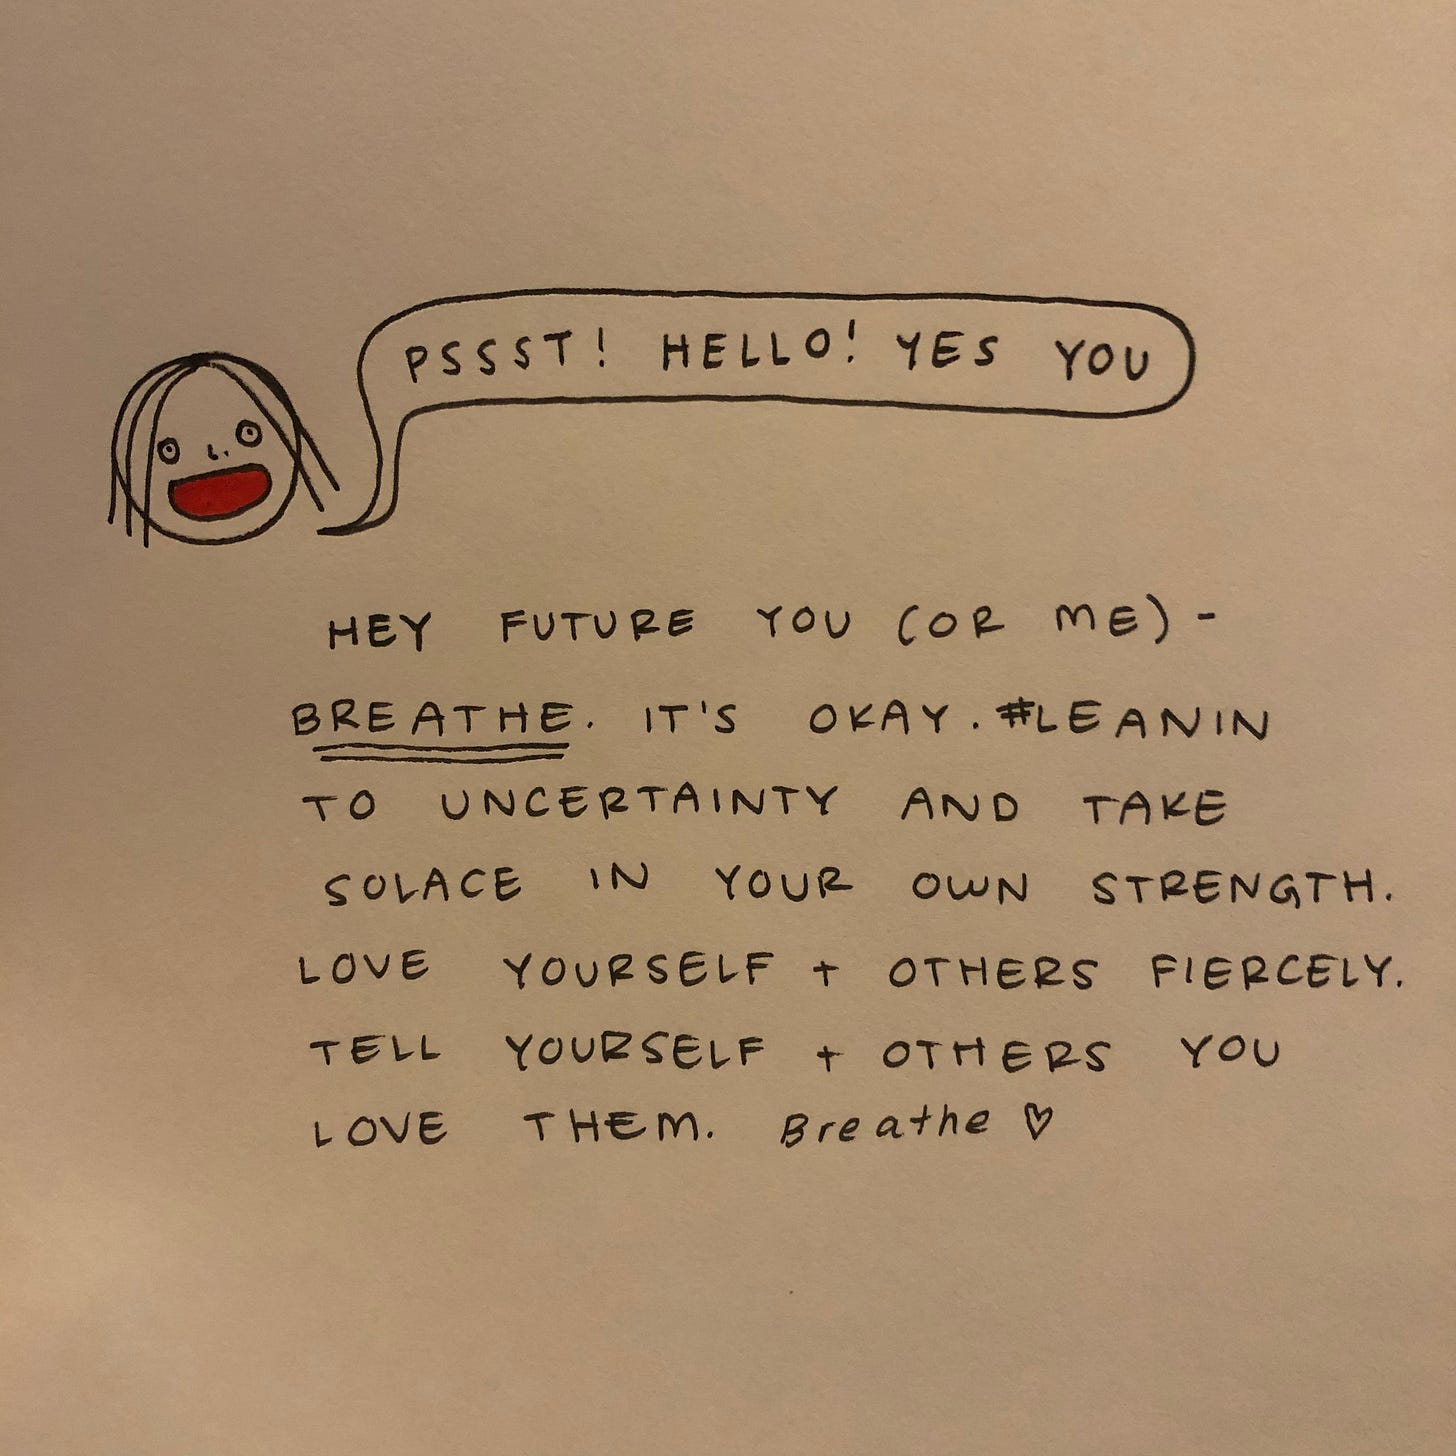 PSSST! HELLO! YES YOU
HEY FUTURE YOU (OR ME) -
BREATHE. IT'S OKAY. #LEANIN
TO UNCERTAINTY AND TAKE
SOLACE IN YOUR OWN STRENGTH.
LOVE YOURSELF + OTHERS FIERCELY.
TELL YOURSELF + OTHERS YOU
LOVE THEM. Breathe ♡